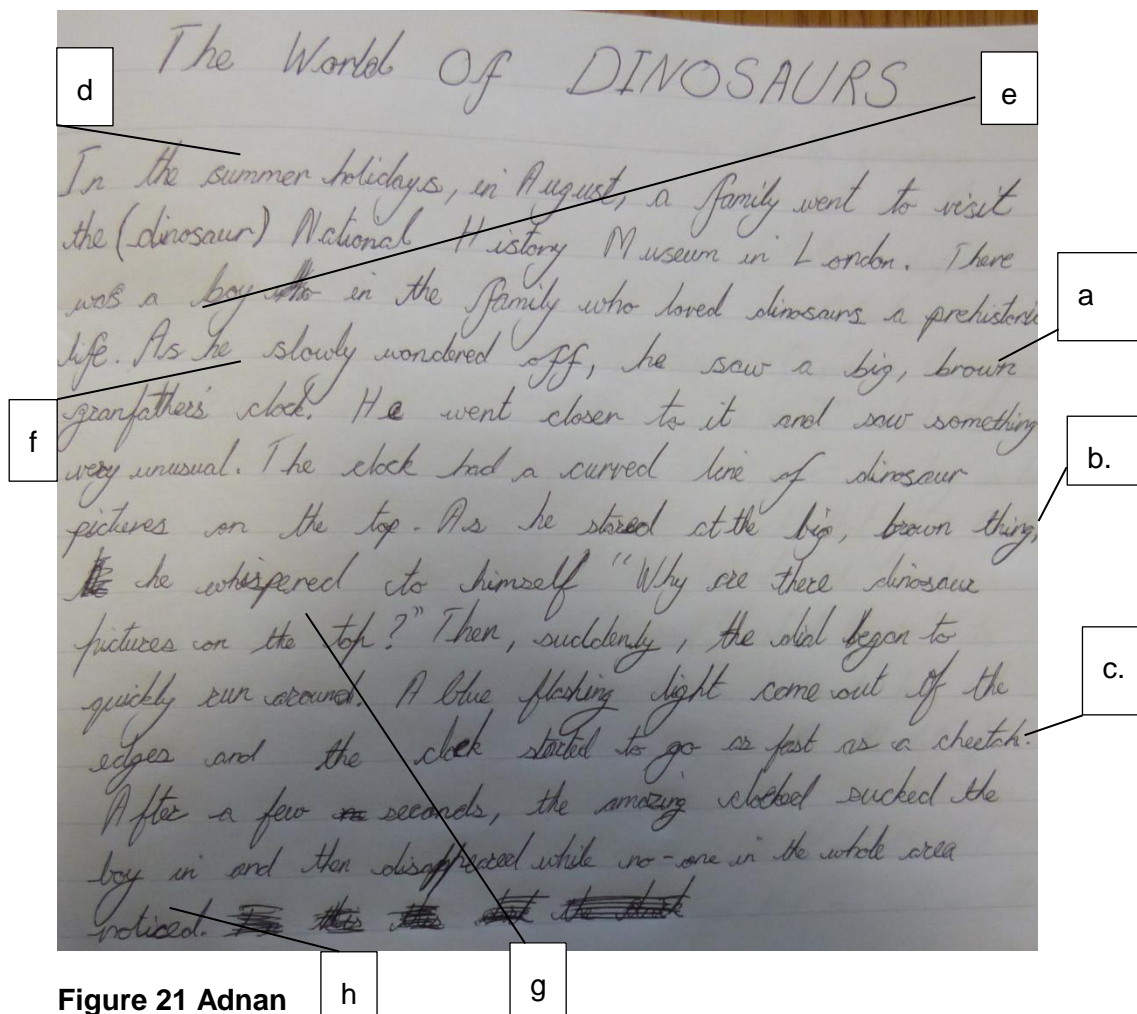 The World Of DINOSAURS
d
e
In the summer holidays, in August, a family went to visit
the (dinosaur) National History Museum in London. There
was a boy in the family who loved dinosaurs a prehistoric
a
life. As he slowly wondered off, he saw a big, brown
granfathers' clock. He went closer to it and saw something
f
very unusual. The clock had a curved line of dinosaur
b.
pictures on the top. As he stared at the big, brown thing,
he whispered to himself "Why are there dinosaur
pictures on the top?" Then, suddenly, the dial began to
quickly run around. A blue flashing light come out of the
c.
edges and the clock started to go as fast as a cheetah.
After a few seconds, the amazing clocked sucked the
boy in and then disappeared while no-one in the whole area
noticed.
h
g
Figure 21 Adnan